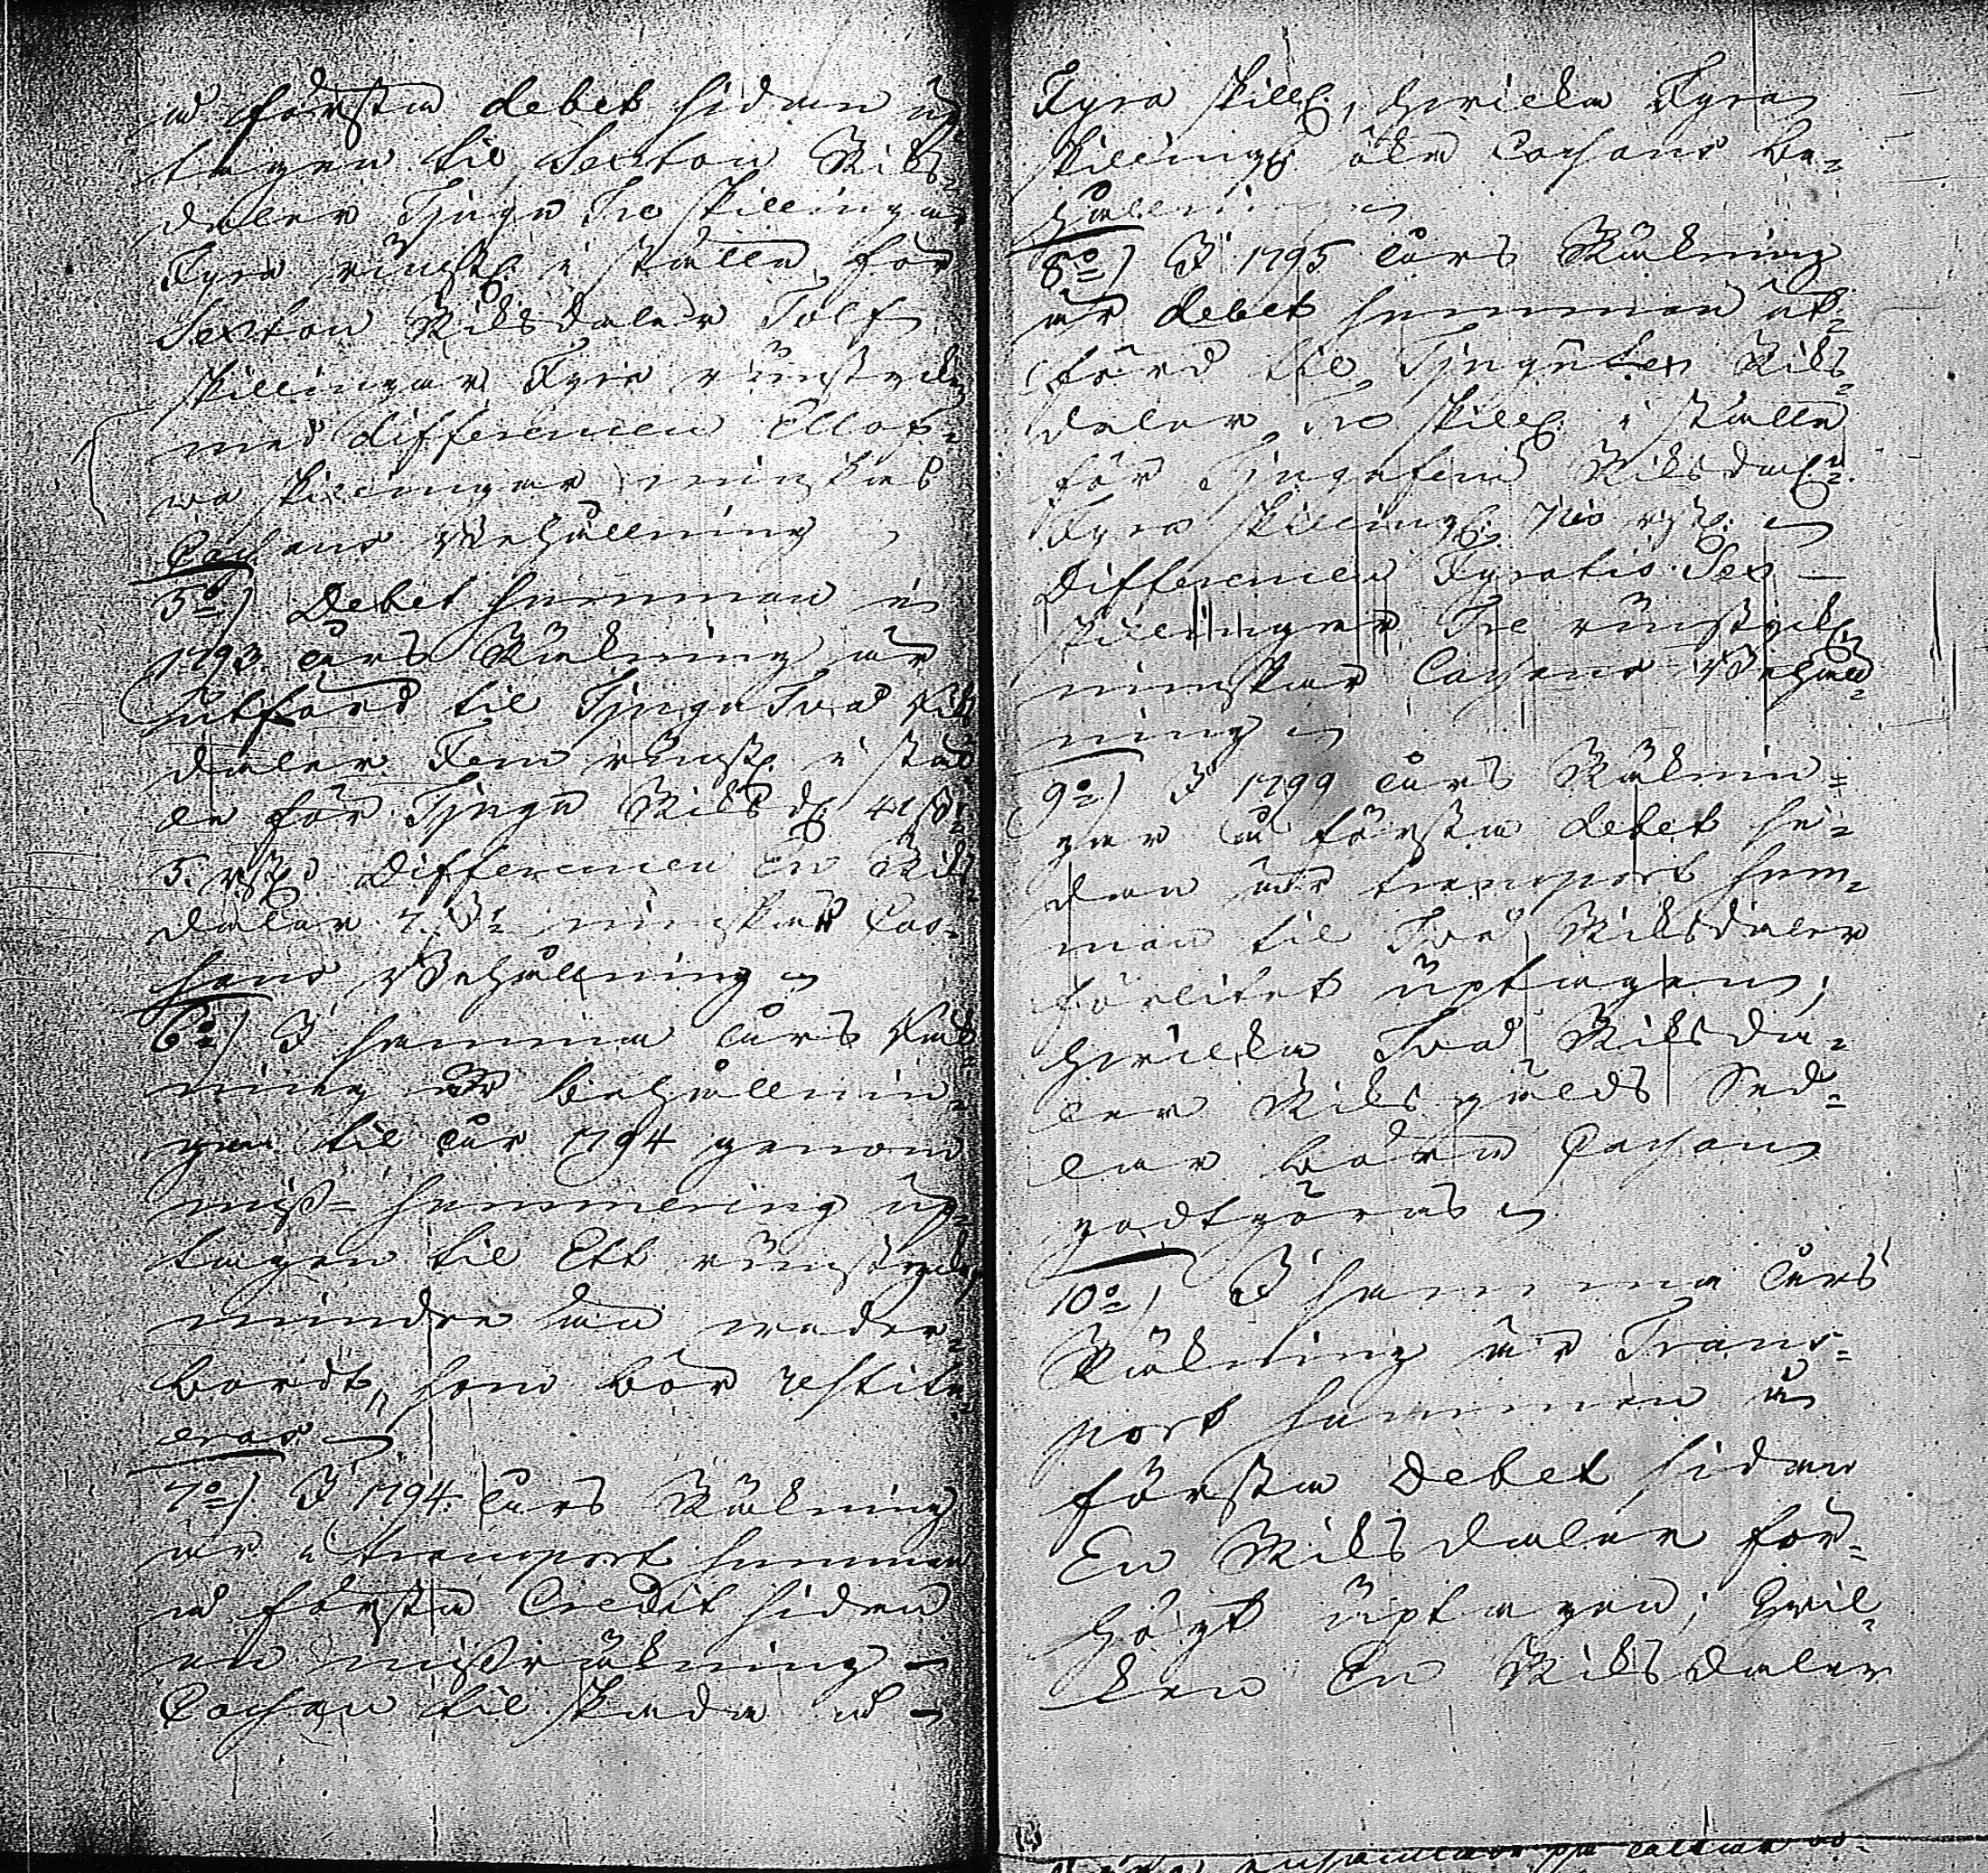 å första debet sidan up
tagen til Sexton Riks-
daler Tjugu Tre skillingar
Fyra runst: i stället för
Sexton Riksdaler Tolf
skillingar Fyra runstycken
med differencen Ellof-
va skillingar minskas
Cassans Behållning
5o) Debet summan i
1793 års Räkning är
utförd til Tjugu Två Riks
daler Fem runst: i stäl
le för Tjugu Riksd: 41 s:
5. rst: Differencen En Riks
daler 7. s: minskar Cas-
sans Behållning
6o) I samma års Räk
ning är behållnin-
gen til år 1794 genom
miss-summering up-
tagen til Ett runstycke
mindre än veder-
bordt, som bör restitu
eras
7o) I 1794 års Räkning
är i transport summan
å första Credit sidan
en missräkning
Cassan til skada å
Fyra skill:, hvilka Fyra
skillingar öka Cassans be-
hållning
8o) I 1795 års Räkning
är debet summan ut-
förd til Tjugusex Riks
daler Tre skill: i stället
för Tjugufem Riksdal:
Fyra skilling: Tio rst:
Differencen Fyratio Sex
skillingar Tre runstycken
minskar Cassans Behåll
ning
9o) I 1799 års Räknin-
gar å första debet si-
dan är transport sum-
man til Två Riksdaler
förlitet uptagen;
hvilka Två Riksda-
ler Riksgälds Sed-
lar böra Cassan
godtgöras
10o) I samma års
Räkning är Trans-
port summan å
första Debet sidan
En Riksdaler för-
högt uptagen; hvil-
ken En Riksdaler